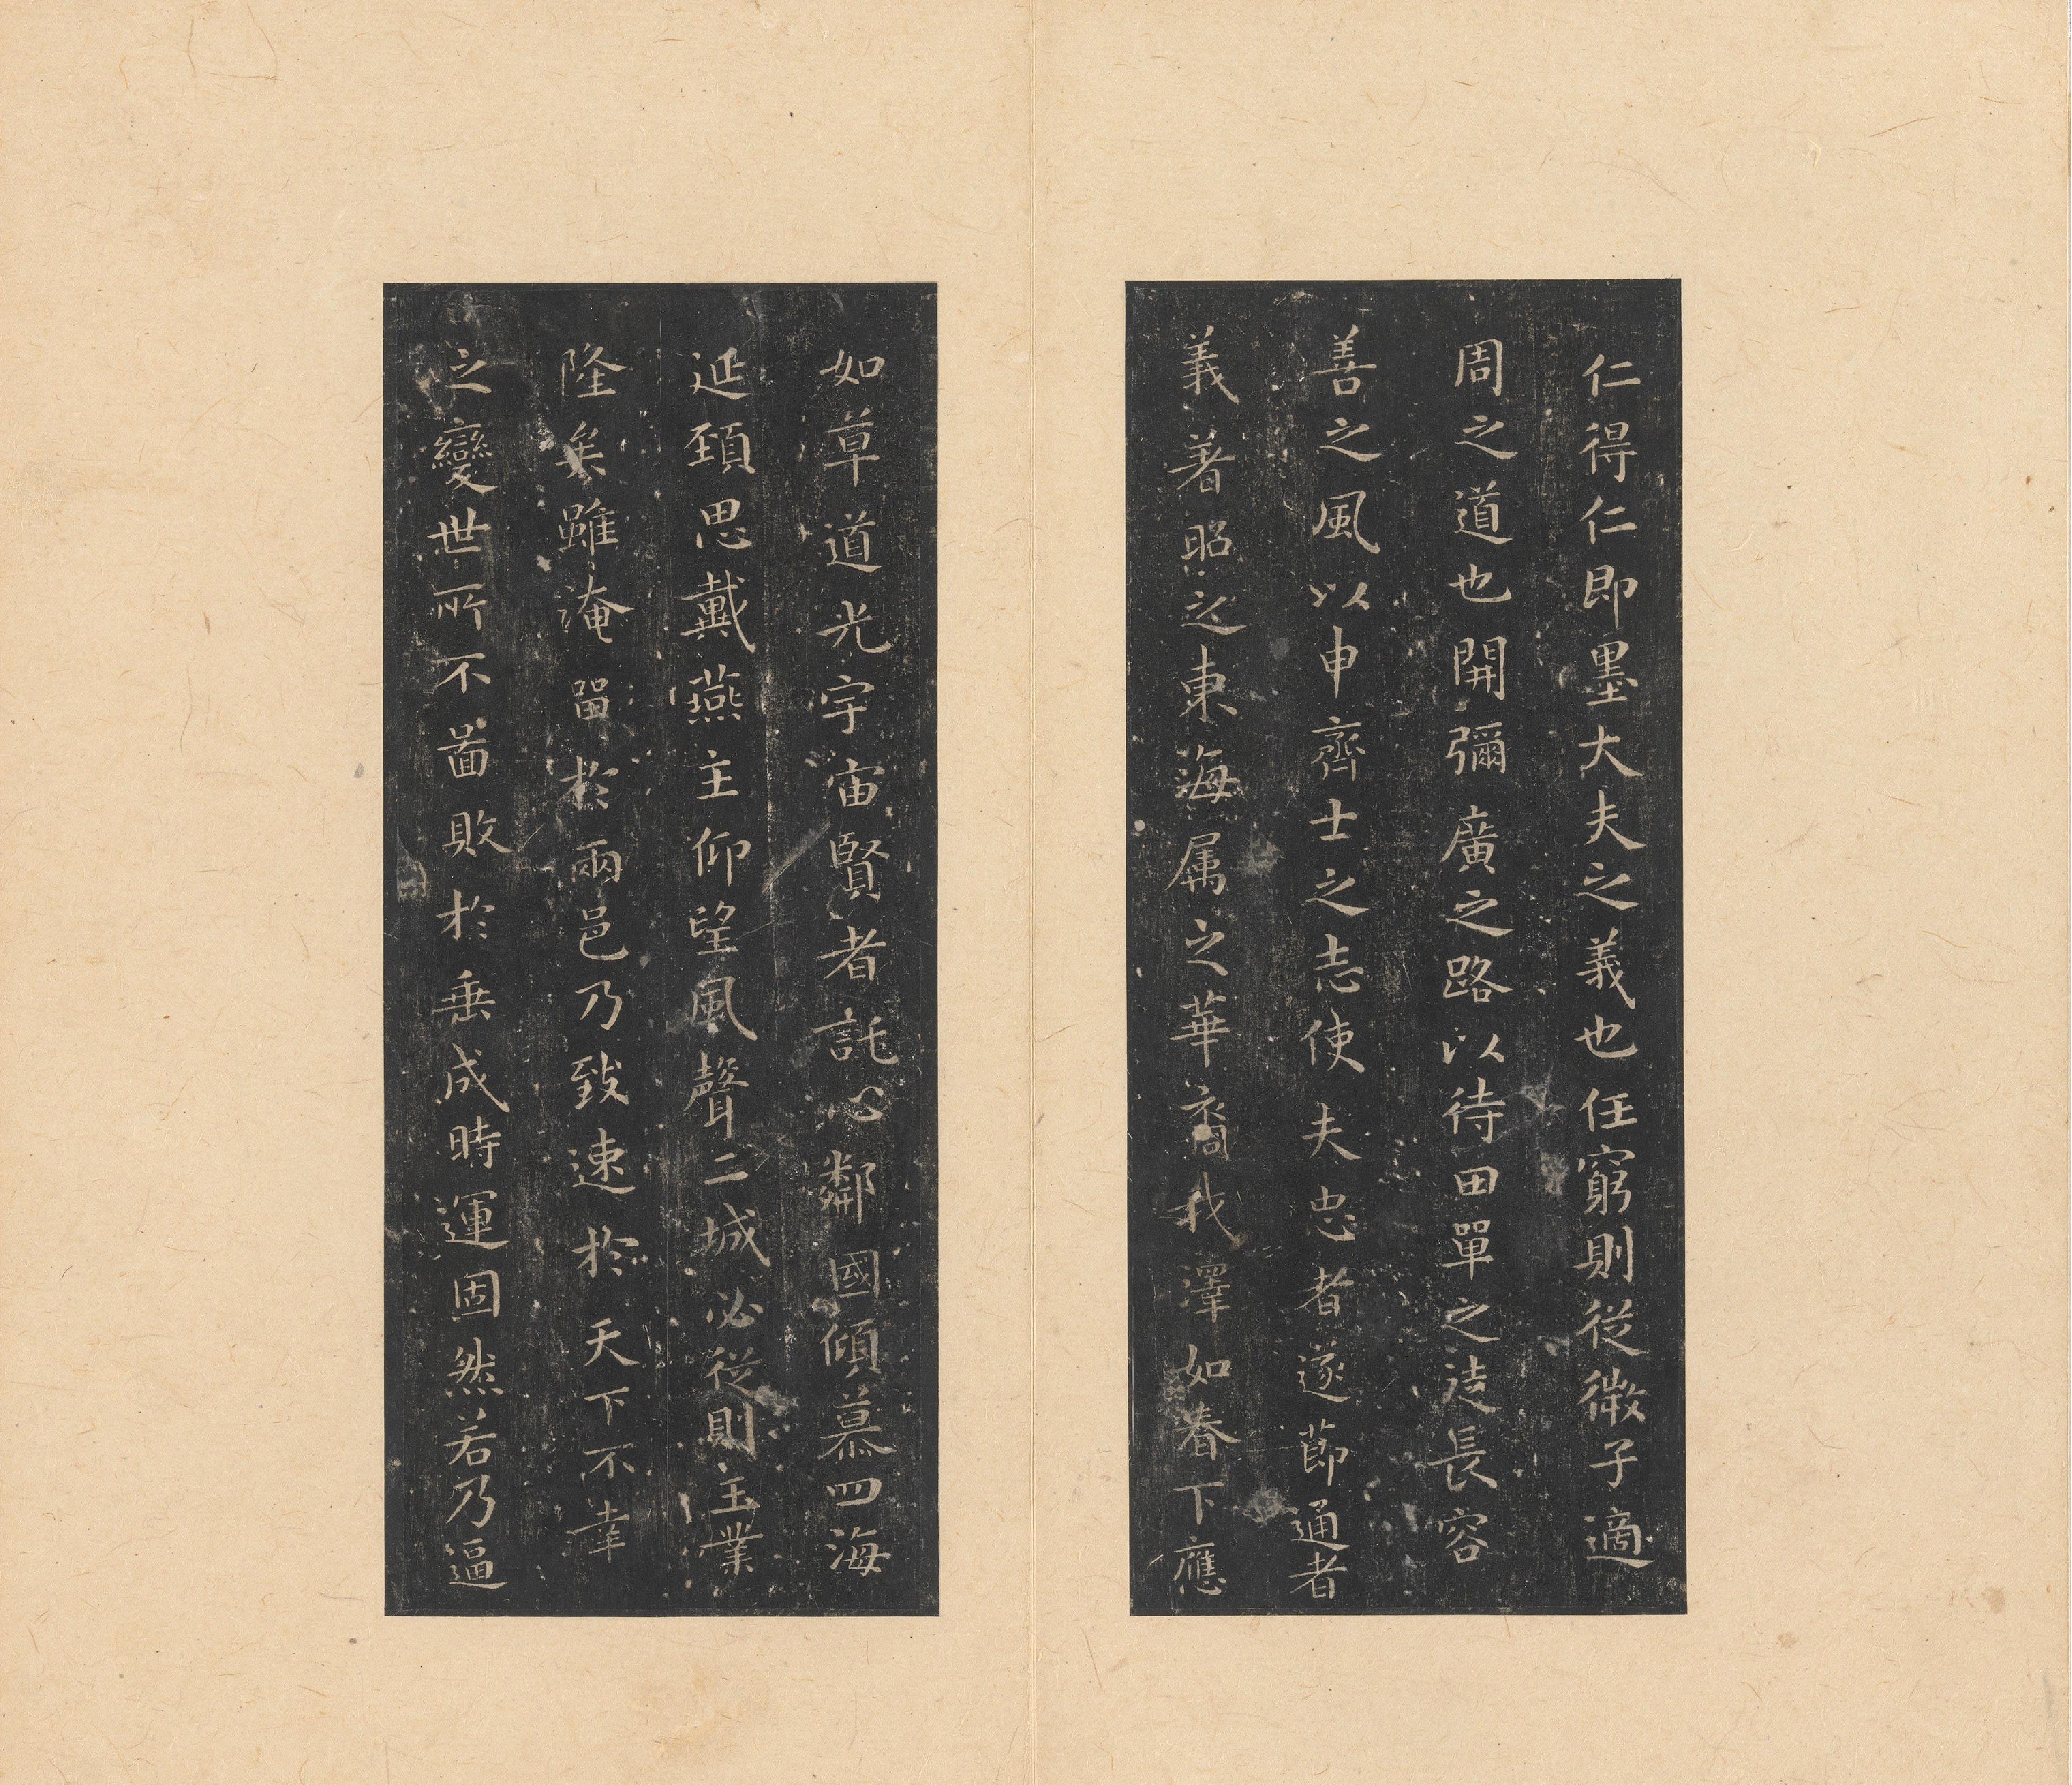 仁得仁即墨大夫之義也任窮則從微子適
周之道也開彌廣之路以待田單之徒長容
善之風以申齊士之志使夫忠者遂節通者
義著昭之東海属之華裔我澤如春下應
如草道光宇宙賢者託心鄰國傾慕四海
延頚思戴燕主仰望風聲二城必從則王業
隆矣雖淹留於兩邑乃致速於天下不幸
之變世所不啚敗於垂成時運固然若乃逼